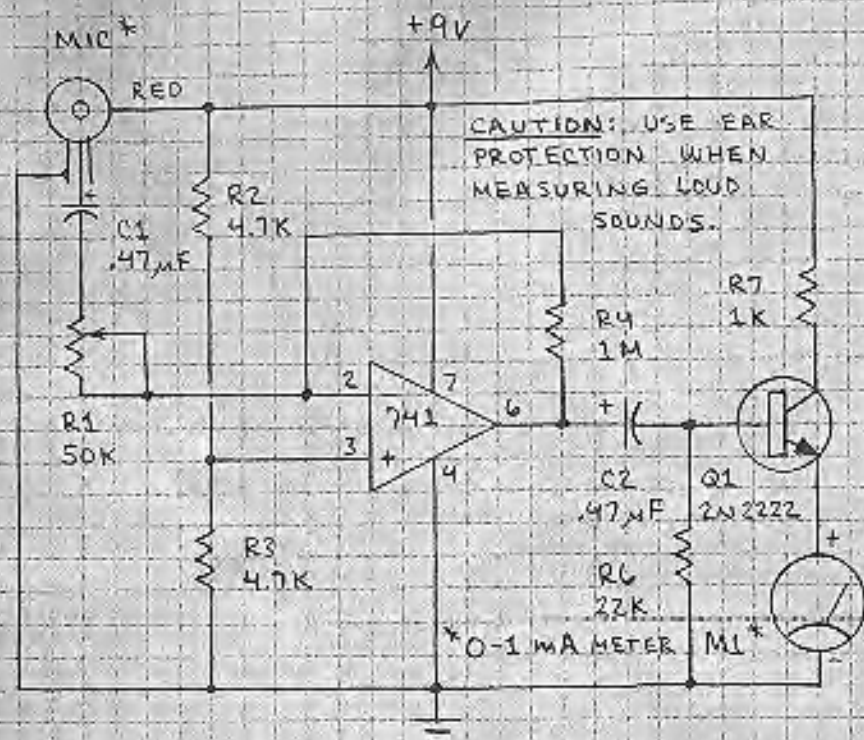 MIC*
+9V
RED
CAUTION: USE EAR
PROTECTION WHEN
MEASURING LOUD
SOUNDS.
R2
4.7K
C1
.47µF
R7
1K
R4
1M
2
7
741
6
+
R1
50K
3
+
4
C2
.47µF
Q1
2N2222
+
R3
4.7K
R6
22K
*0-1 mA METER
M1*
-